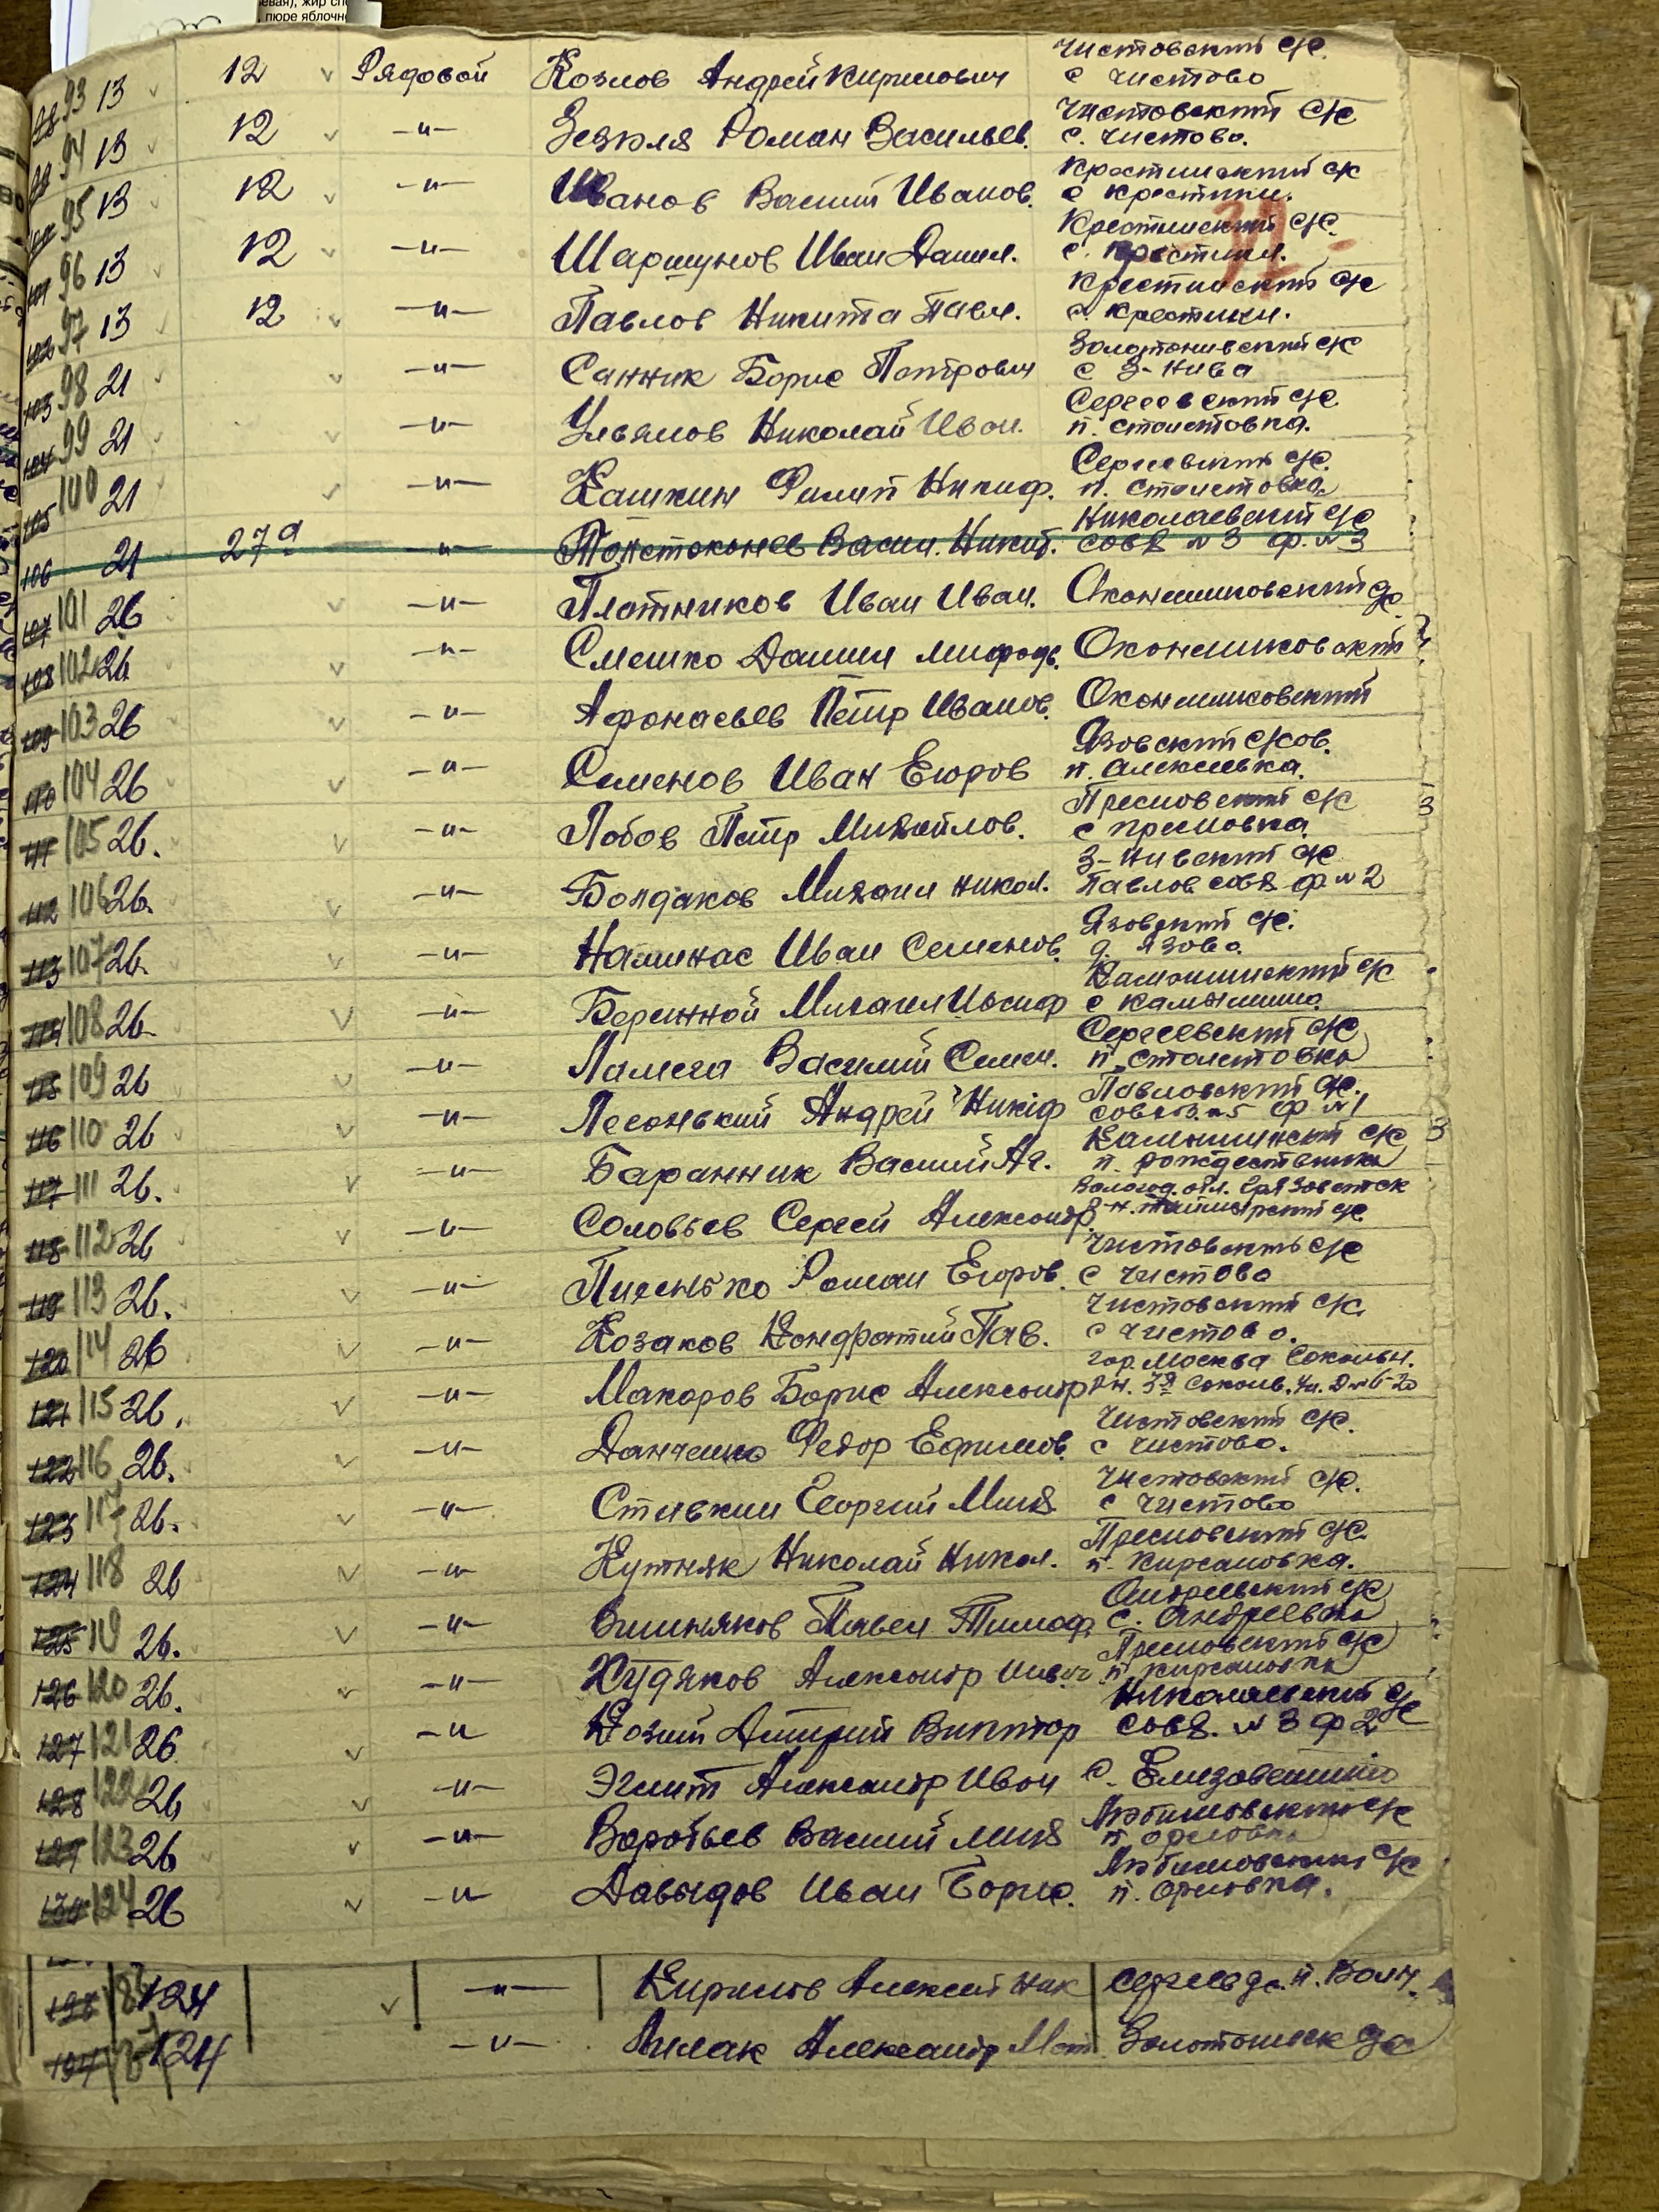 пюре яблочн
93 13 12 Рядовой Козлов Андрей Кирилович Чистовский с/с
с Чистово
94 13 12 -„- Роман Васильев. Чистовский с/с
с. Чистово.
95 13 12 -„- Иванов Василий Иванов. Крестинский с/с
с Крестики.
96 13 12 -„- Шаршунов Иван Данил. Крестинский с/с.
с. Крестики.
97 13 12 -„- Павлов Никита Павл. Крестинский с/с
с. Крестики.
103 98 21 -„- Санник Борис Петрович Золотонивский с/с
с З-Нива
104 99 21 -„- Ульянов Николай Иван. Сергеевский с/с
п. Столетовка.
105 100 21 -„- Кашкин Филип Никиф. Сергеевский с/с.
п. Столетовка
106 21 27а -„- Толстоконев Васил. Никит. Николаевский с/с
совх №3 ф. №3
107 101 26 -„- Плотников Иван Иван. Оконешниковский с/с
108 102 26 -„- Смешко Данил Мифодь. Оконешниковский
109 103 26 -„- Афонасьев Петр Иванов. Оконешниковский
110 104 26 -„- Семенов Иван Егоров Язовский с/сов.
п. Алексеевка.
111 105 26. -„- Лобов Петр Михайлов. Пресновский с/с
с Пресновка
112 106 26. -„- Болдаков Михаил Никол. З-Нивский с/с
Павлов совх ф №2
113 107 26. -„- Налинас Иван Семенов. Язовский с/с.
д. Язово.
114 108 26. -„- Бережной Михаил Иосиф Камышинский с/с
с Камышино
115 109 26 -„- Ламега Василий Семен. Сергеевский с/с
п. Столетовка
116 110 26 -„- Лесонький Андрей Никиф Павловский с/с.
совхоз №5 ф №1
117 111 26. -„- Баранник Василий Аг. Камышинский с/с
п. Рождественка
118 112 26 -„- Соловьев Сергей Александр. Вологод. обл.
119 113 26. -„- Писенько Роман Егоров. Чистовский с/с
с Чистово
120 114 26 -„- Козаков Кондратий Пав. Чистовский с/с
с Чистово.
121 115 26. -„- Макаров Борис Александр гор. Москва Сокольн.
р-н. 3я Соколь. ул.
122 116 26. -„- Данченко Федор Ефимов. Чистовский с/с.
с Чистово.
123 117 26. -„- Стивкин Георгий Мих Чистовский с/с.
с Чистово
124 118 26 -„- Кутняк Николай Никол. Пресновский с/с.
п. Кирсановка.
125 119 26. -„- Вишняков Павел Тимоф. Андреевский с/с
с. Андреевка
126 120 26. -„- Худяков Александр Пресновский с/с
п. Кирсановка
127 121 26 -„ Козий Дмитрий Виктор Николаевский с/с
совх. №3 ф 2
128 122 26 -„- Эглит Александр Иван с. Елизаветино
129 123 26 -„- Воробьев Василий Мих Любимовский с/с
п Орловка
130 124 26 -„- Давыдов Иван Борис. Любимовский с/с
п. Орловка.
124 -„- Кирилов Алексей Ник Сергеев с/с. п.
124 -„- Александр Золотонивск с/с